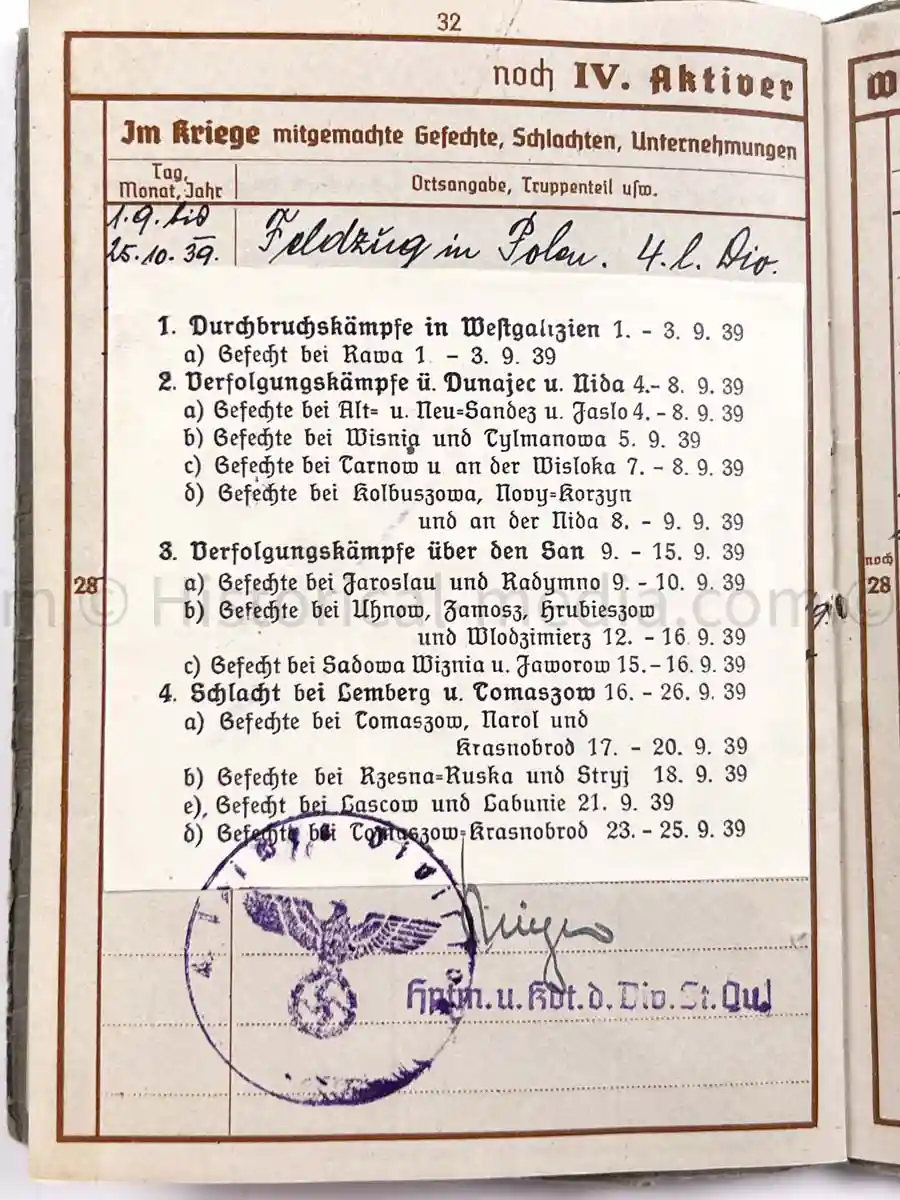 32
noch IV. Aktiver
Im Kriege mitgemachte Gefechte, Schlachten, Unternehmungen
Tag,
Monat, Jahr
Ortsangabe, Truppenteil usw.
1.9. bis
25.10.39.
Feldzug in Polen. 4. l. Div.
1. Durchbruchskämpfe in Westgalizien 1. - 3. 9. 39
a) Gefecht bei Rawa 1 - 3. 9. 39
2. Verfolgungskämpfe ü. Dunajec u. Nida 4.- 8. 9. 39
a) Gefechte bei Alt= u. Neu=Sandez u. Jaslo 4. - 8. 9. 39
b) Gefechte bei Wisnia und Tylmanowa 5. 9. 39
c) Gefechte bei Tarnow u an der Wisloka 7. - 8. 9. 39
d) Gefechte bei Kolbuszowa, Novy=Korzyn
und an der Nida 8. - 9. 9. 39
3. Verfolgungskämpfe über den San 9. - 15. 9. 39
28
a) Gefechte bei Jaroslau und Radymno 9. - 10. 9. 39
b) Gefechte bei Uhnow, Zamosz, Hrubieszow
und Wlodzimierz 12. - 16. 9. 39
c) Gefecht bei Sadowa Wiznia u. Jaworow 15. - 16. 9. 39
4. Schlacht bei Lemberg u. Tomaszow 16. - 26. 9. 39
a) Gefechte bei Tomaszow, Narol und
Krasnobrod 17. - 20. 9. 39
b) Gefechte bei Rzesna=Ruska und Stryj 18. 9. 39
e), Gefecht bei Lascow und Labunie 21. 9. 39
d) Gefechte bei Tomaszow=Krasnobrod 23. - 25. 9. 39
Hptm. u. Kdt. d. Div. St. Qu.
noch
28
m © Historical-media.com ©